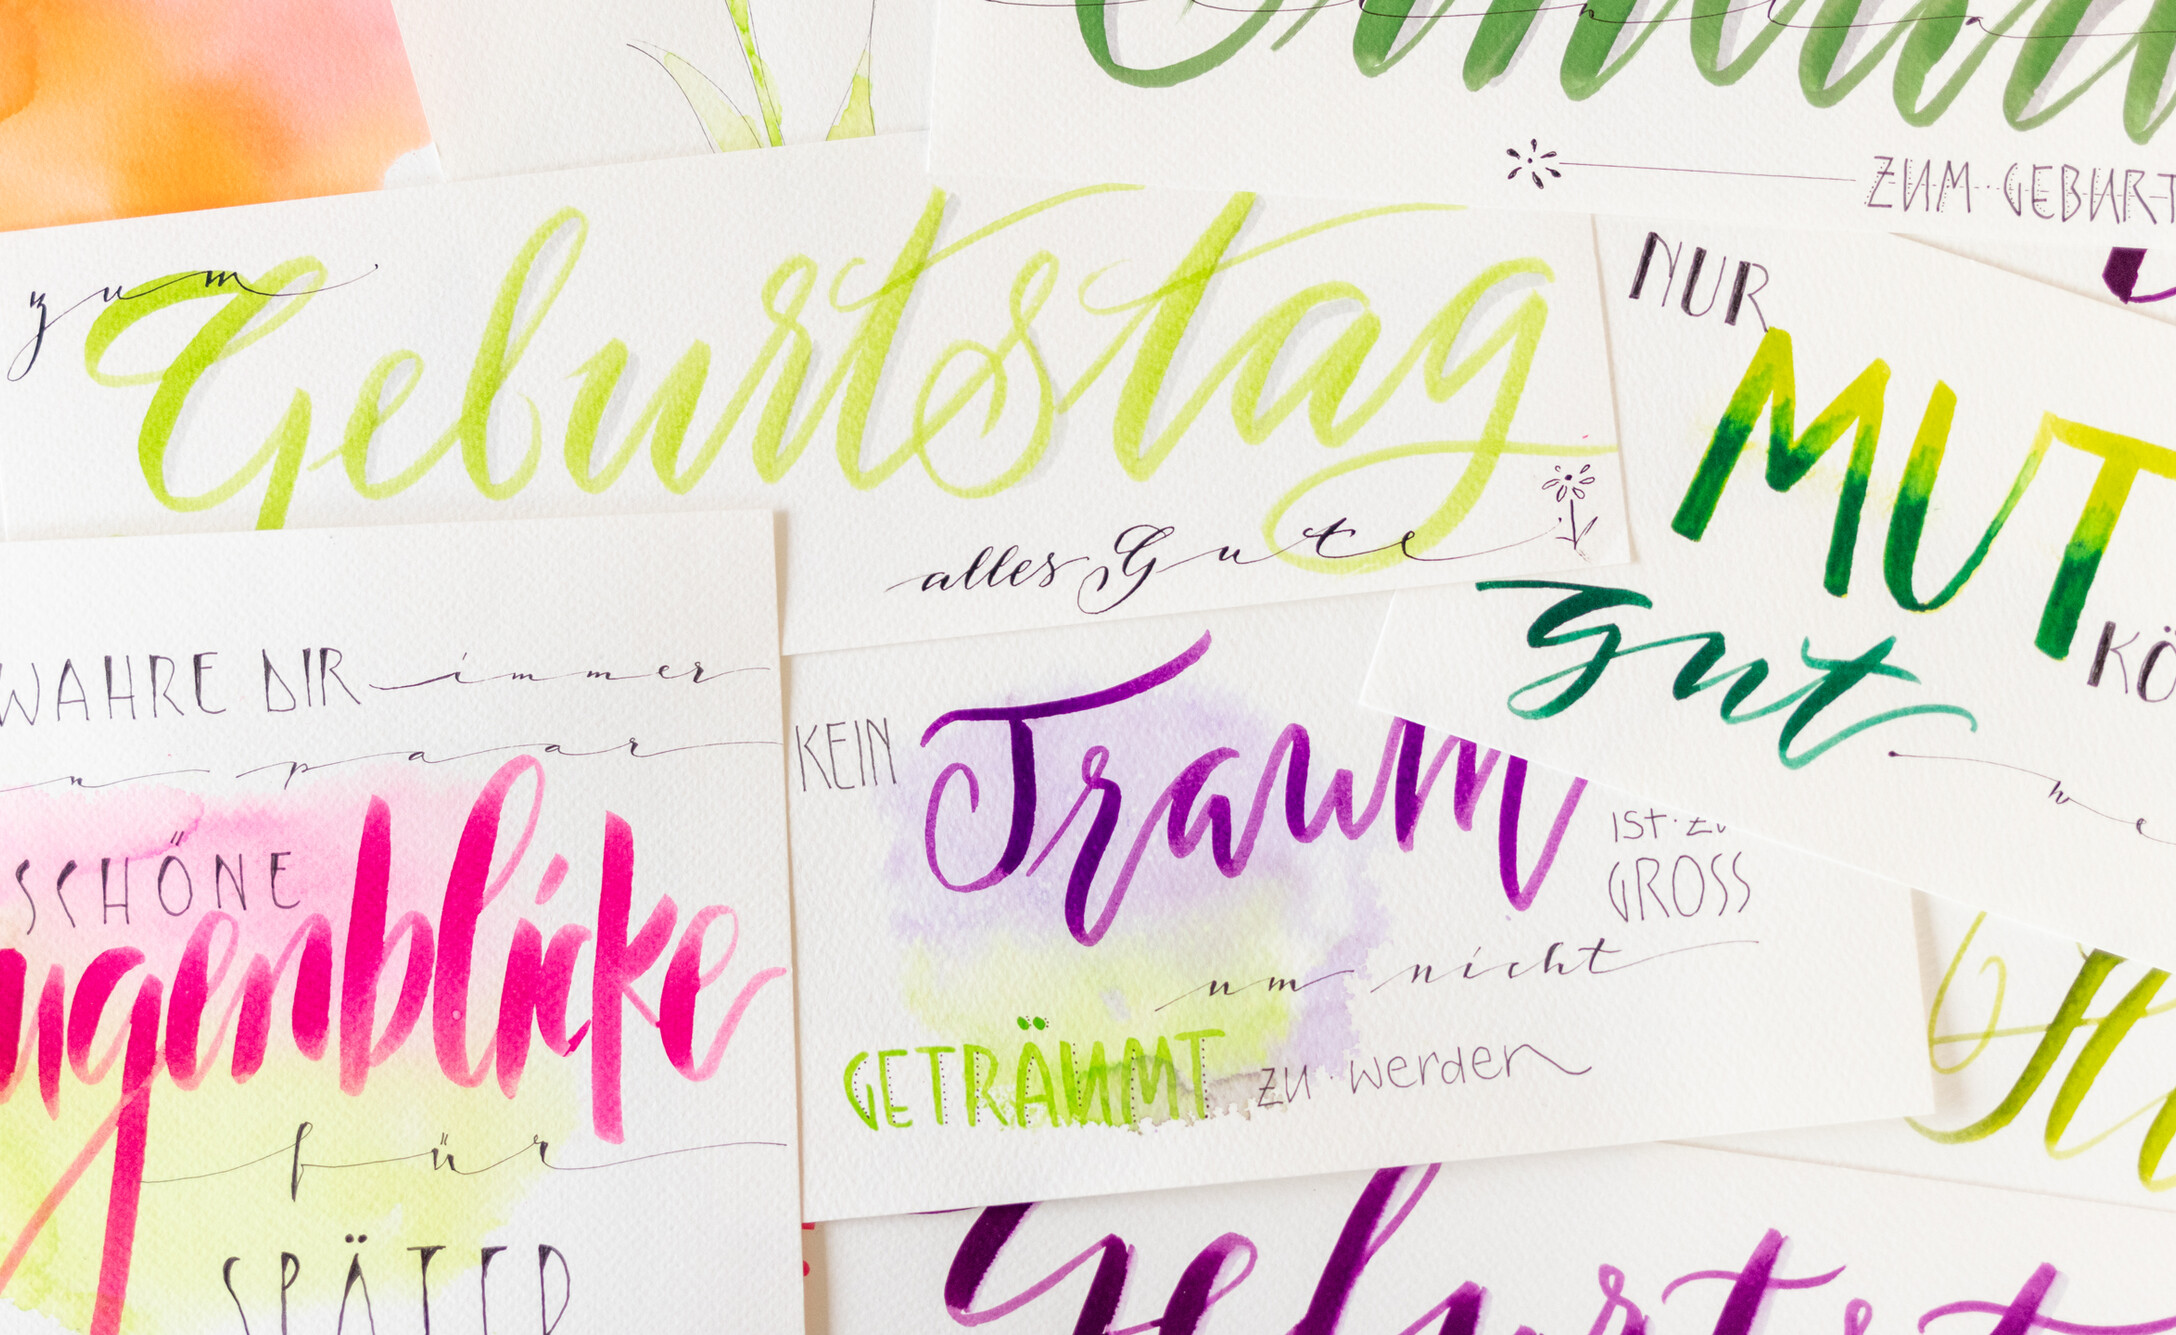 ZUM · GEBURT
zum
Geburtstag
alles Gute
NUR
MUT
KÖ
gut
WAHRE DIR immer
n paar
SCHÖNE
ugenblicke
für
SPÄTER
KEIN Traum
IST · ZU
GROSS
um nicht
GETRÄUMT zu · werden
Geburtst